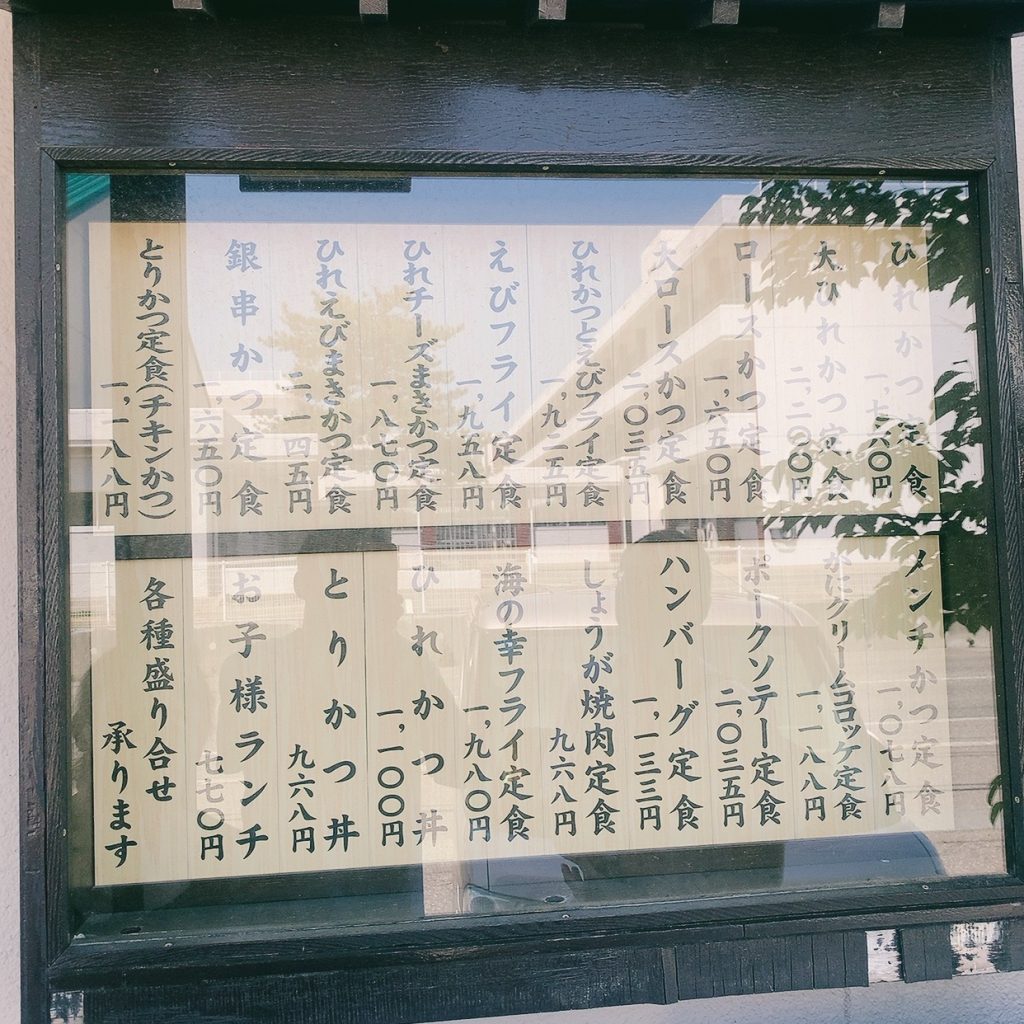 ひれかつ定食
一,七六〇円
大ひれかつ定食
二,二〇〇円
ロースかつ定食
一,六五〇円
大ロースかつ定食
二,〇三五円
ひれかつとえびフライ定食
一,九二五円
えびフライ定食
一,九五八円
ひれチーズまきかつ定食
一,八七〇円
ひれえびまきかつ定食
二,一四五円
銀串かつ定食
一,六五〇円
とりかつ定食(チキンかつ)
一,一八八円
メンチかつ定食
一,〇七八円
かにクリームコロッケ定食
一,一八八円
ポークソテー定食
二,〇三五円
ハンバーグ定食
一,一三三円
しょうが焼肉定食
九六八円
海の幸フライ定食
一,九八〇円
ひれかつ丼
一,一〇〇円
とりかつ丼
九六八円
お子様ランチ
七七〇円
各種盛り合せ
承ります